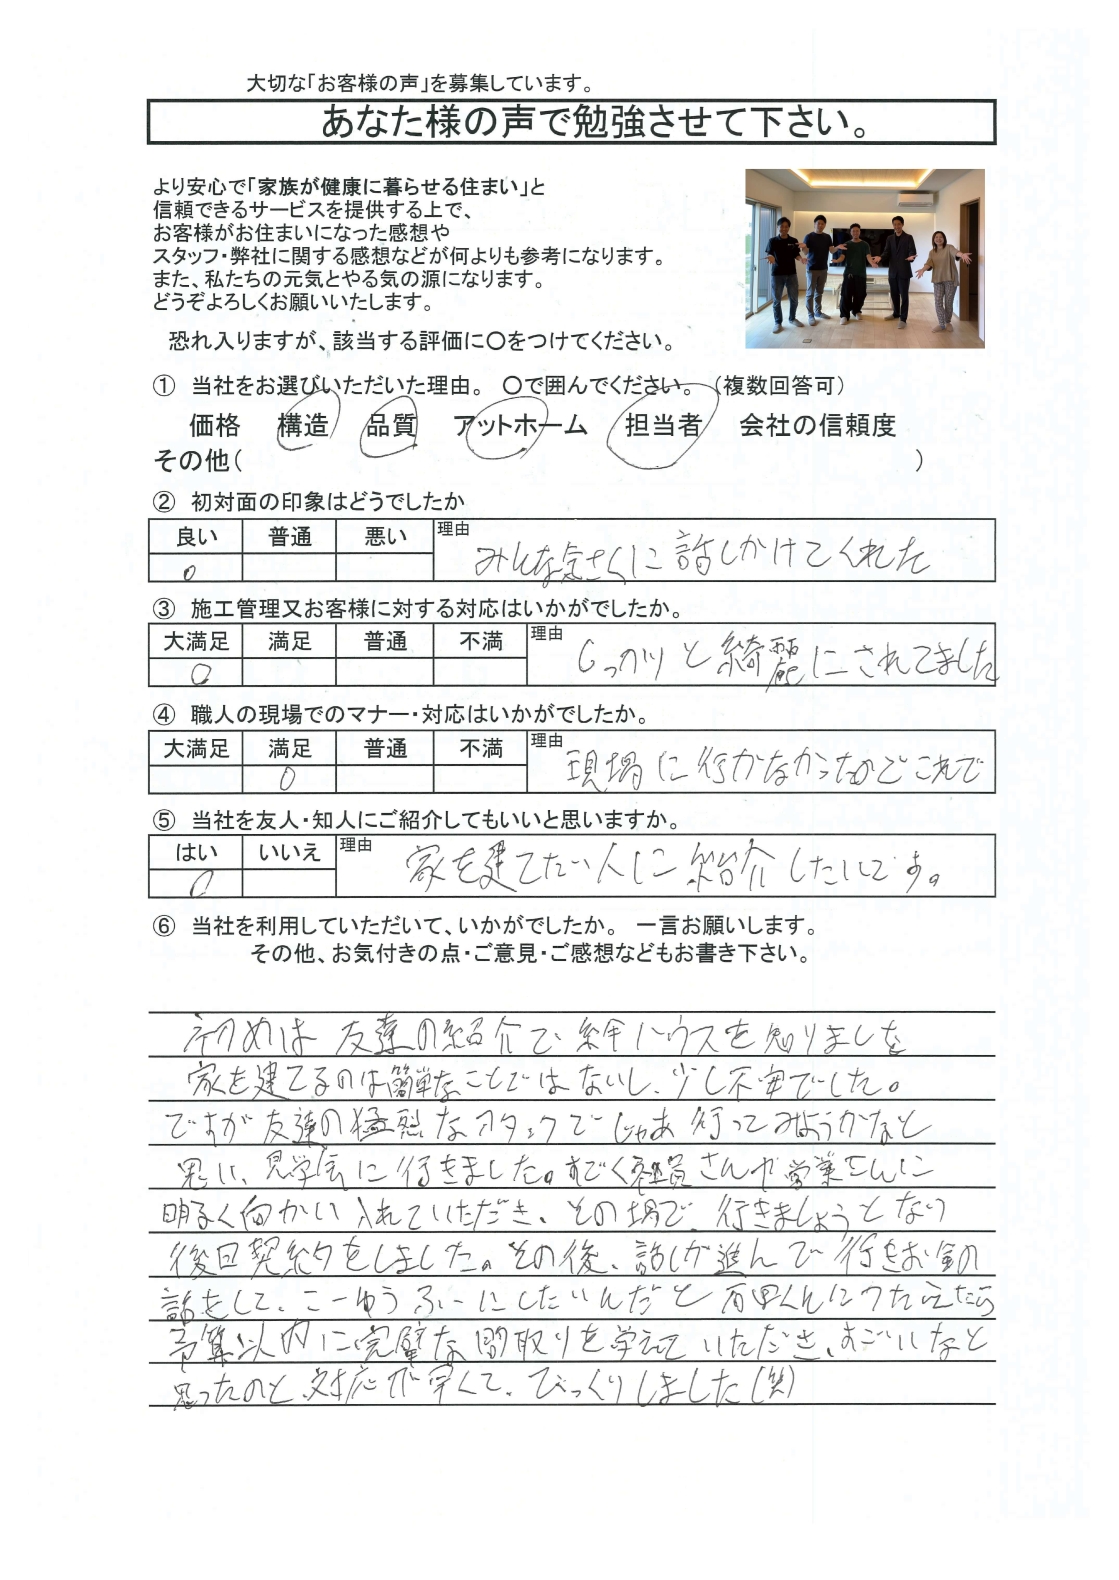 大切な「お客様の声」を募集しています。
あなた様の声で勉強させて下さい。
より安心で「家族が健康に暮らせる住まい」と
信頼できるサービスを提供する上で、
お客様がお住まいになった感想や
スタッフ・弊社に関する感想などが何よりも参考になります。
また、私たちの元気とやる気の源になります。
どうぞよろしくお願いいたします。
恐れ入りますが、該当する評価に〇をつけてください。
① 当社をお選びいただいた理由。 〇で囲んでください。 (複数回答可)
価格 構造 品質 アットホーム 担当者 会社の信頼度
その他( )
② 初対面の印象はどうでしたか
良い 普通 悪い 理由 みんな気さくに話しかけてくれた
○
③ 施工管理又お客様に対する対応はいかがでしたか。
大満足 満足 普通 不満 理由 しっかりと綺麗にされてました
○
④ 職人の現場でのマナー・対応はいかがでしたか。
大満足 満足 普通 不満 理由 現場に行かなかったのでこれで
○
⑤ 当社を友人・知人にご紹介してもいいと思いますか。
はい いいえ 理由 家を建てたい人に紹介したいです。
○
⑥ 当社を利用していただいて、いかがでしたか。 一言お願いします。
その他、お気付きの点・ご意見・ご感想などもお書き下さい。
初めは友達の紹介で絆ハウスを知りました
家を建てるのは簡単なことではないし、少し不安でした。
ですが友達の猛烈なアタックでじゃあ行ってみようかなと
思い、見学会に行きました。すごく社員さんや営業さんに
明るく向かい入れていただき、その場で、行きましょうとなり
後日契約をしました。その後、話しが進んで行きお金の
話をして、こーゆうふーにしたいんだと くんにつたえたら
予算以内に完璧な間取りを学えていただき、すごいなと
思ったのと対応が早くて、びっくりしました(笑)